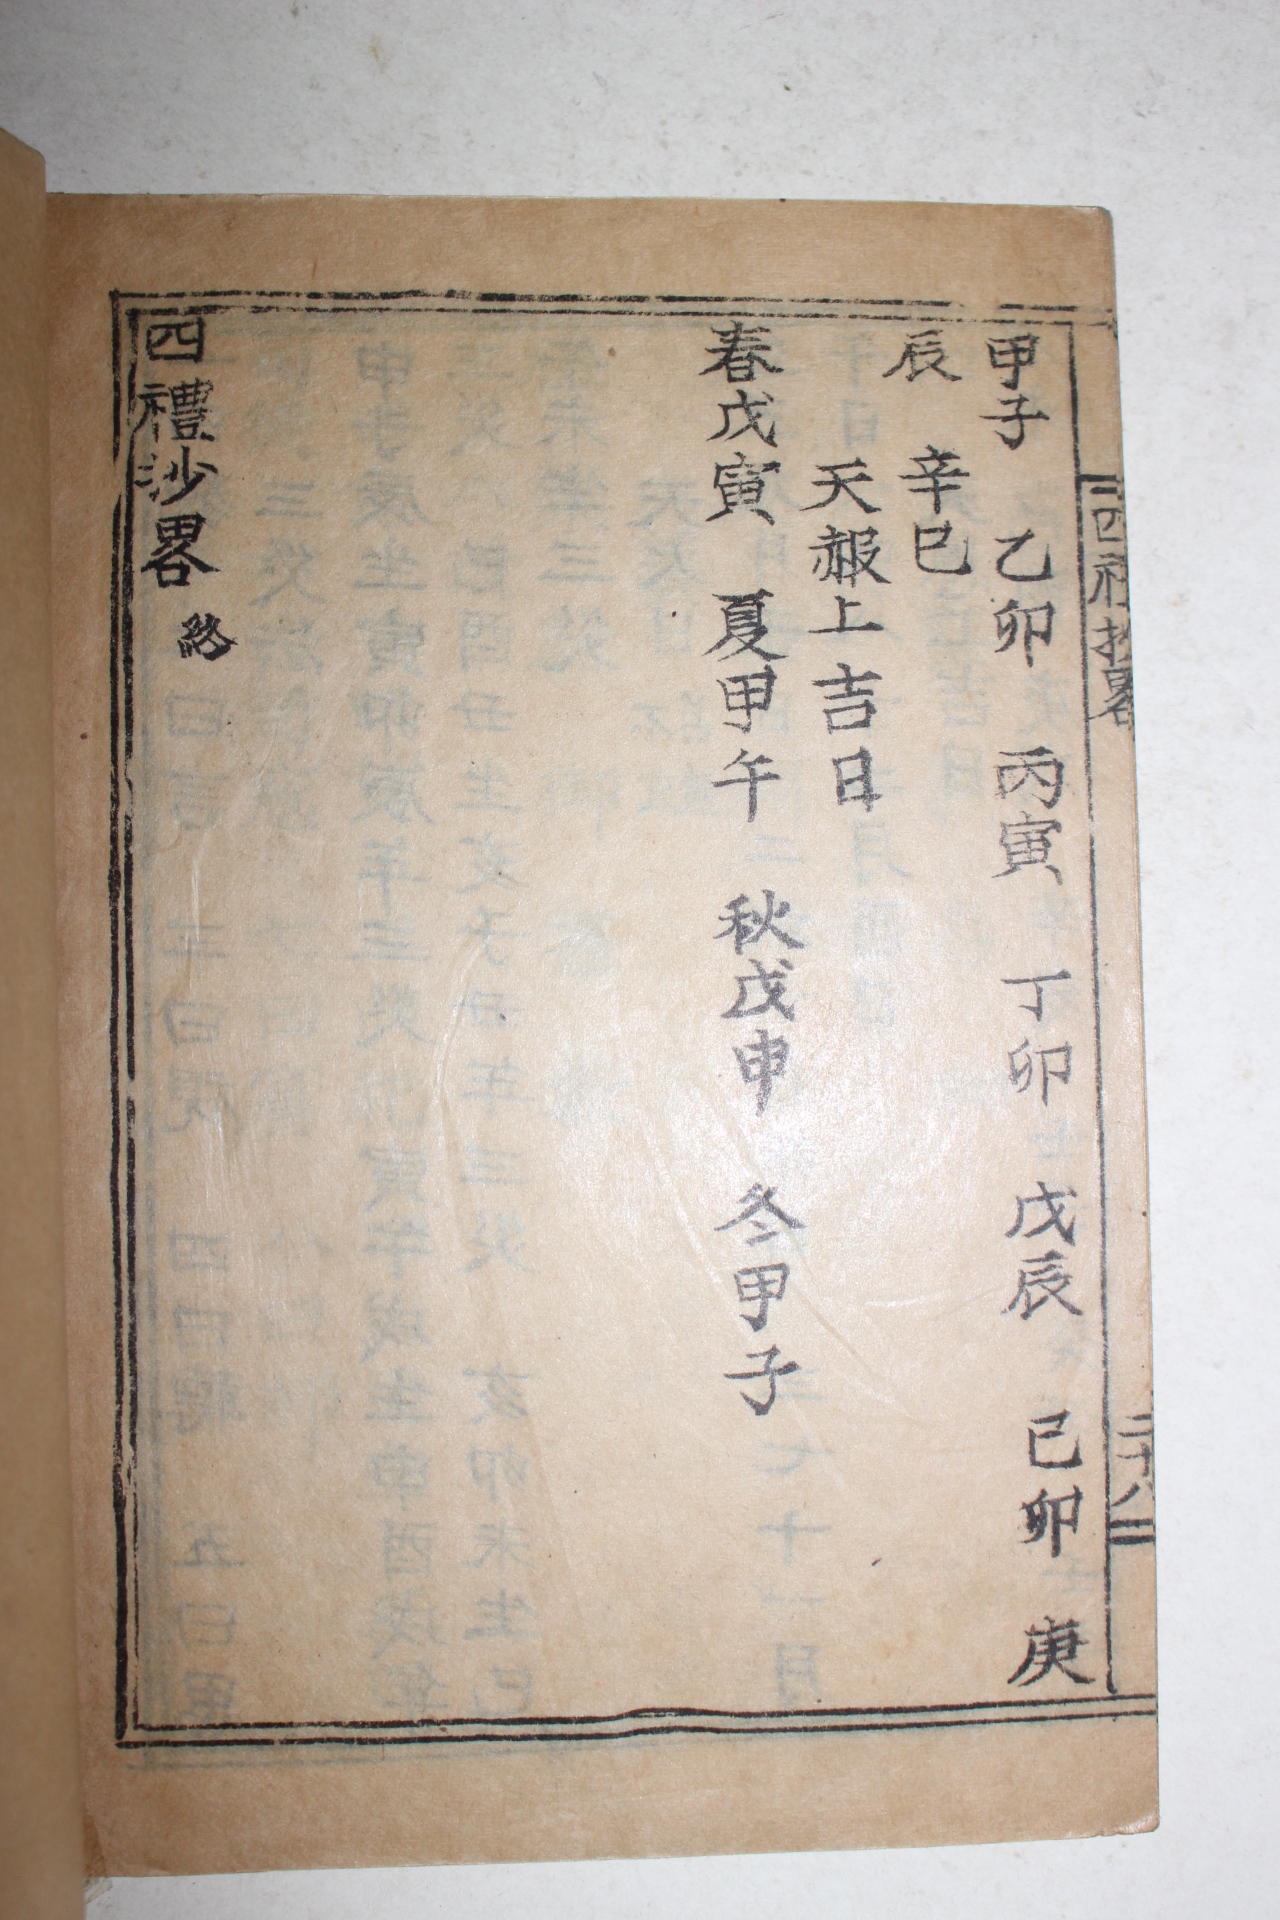 甲子 乙卯 丙寅 丁卯 戊辰 己卯 庚
辰 辛巳
天赧上吉日
春戊寅 夏甲午 秋戊申 冬甲子
四禮沙畧 終
四礼抄畧
二十八